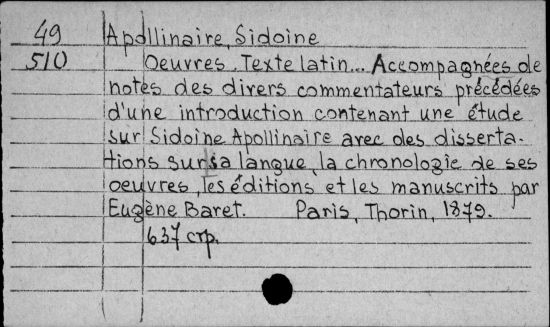 49 Apollinaire, Sidoine
510 Oeuvres. Texte latin... Accompagnées de
notes des divers commentateurs précédées
d'une introduction contenant une étude
sur Sidoine Apollinaire avec des disserta-
tions sur sa langue, la chronologie de ses
oeuvres, les éditions et les manuscrits par
Eugène Baret. Paris, Thorin, 1879.
637 crp.